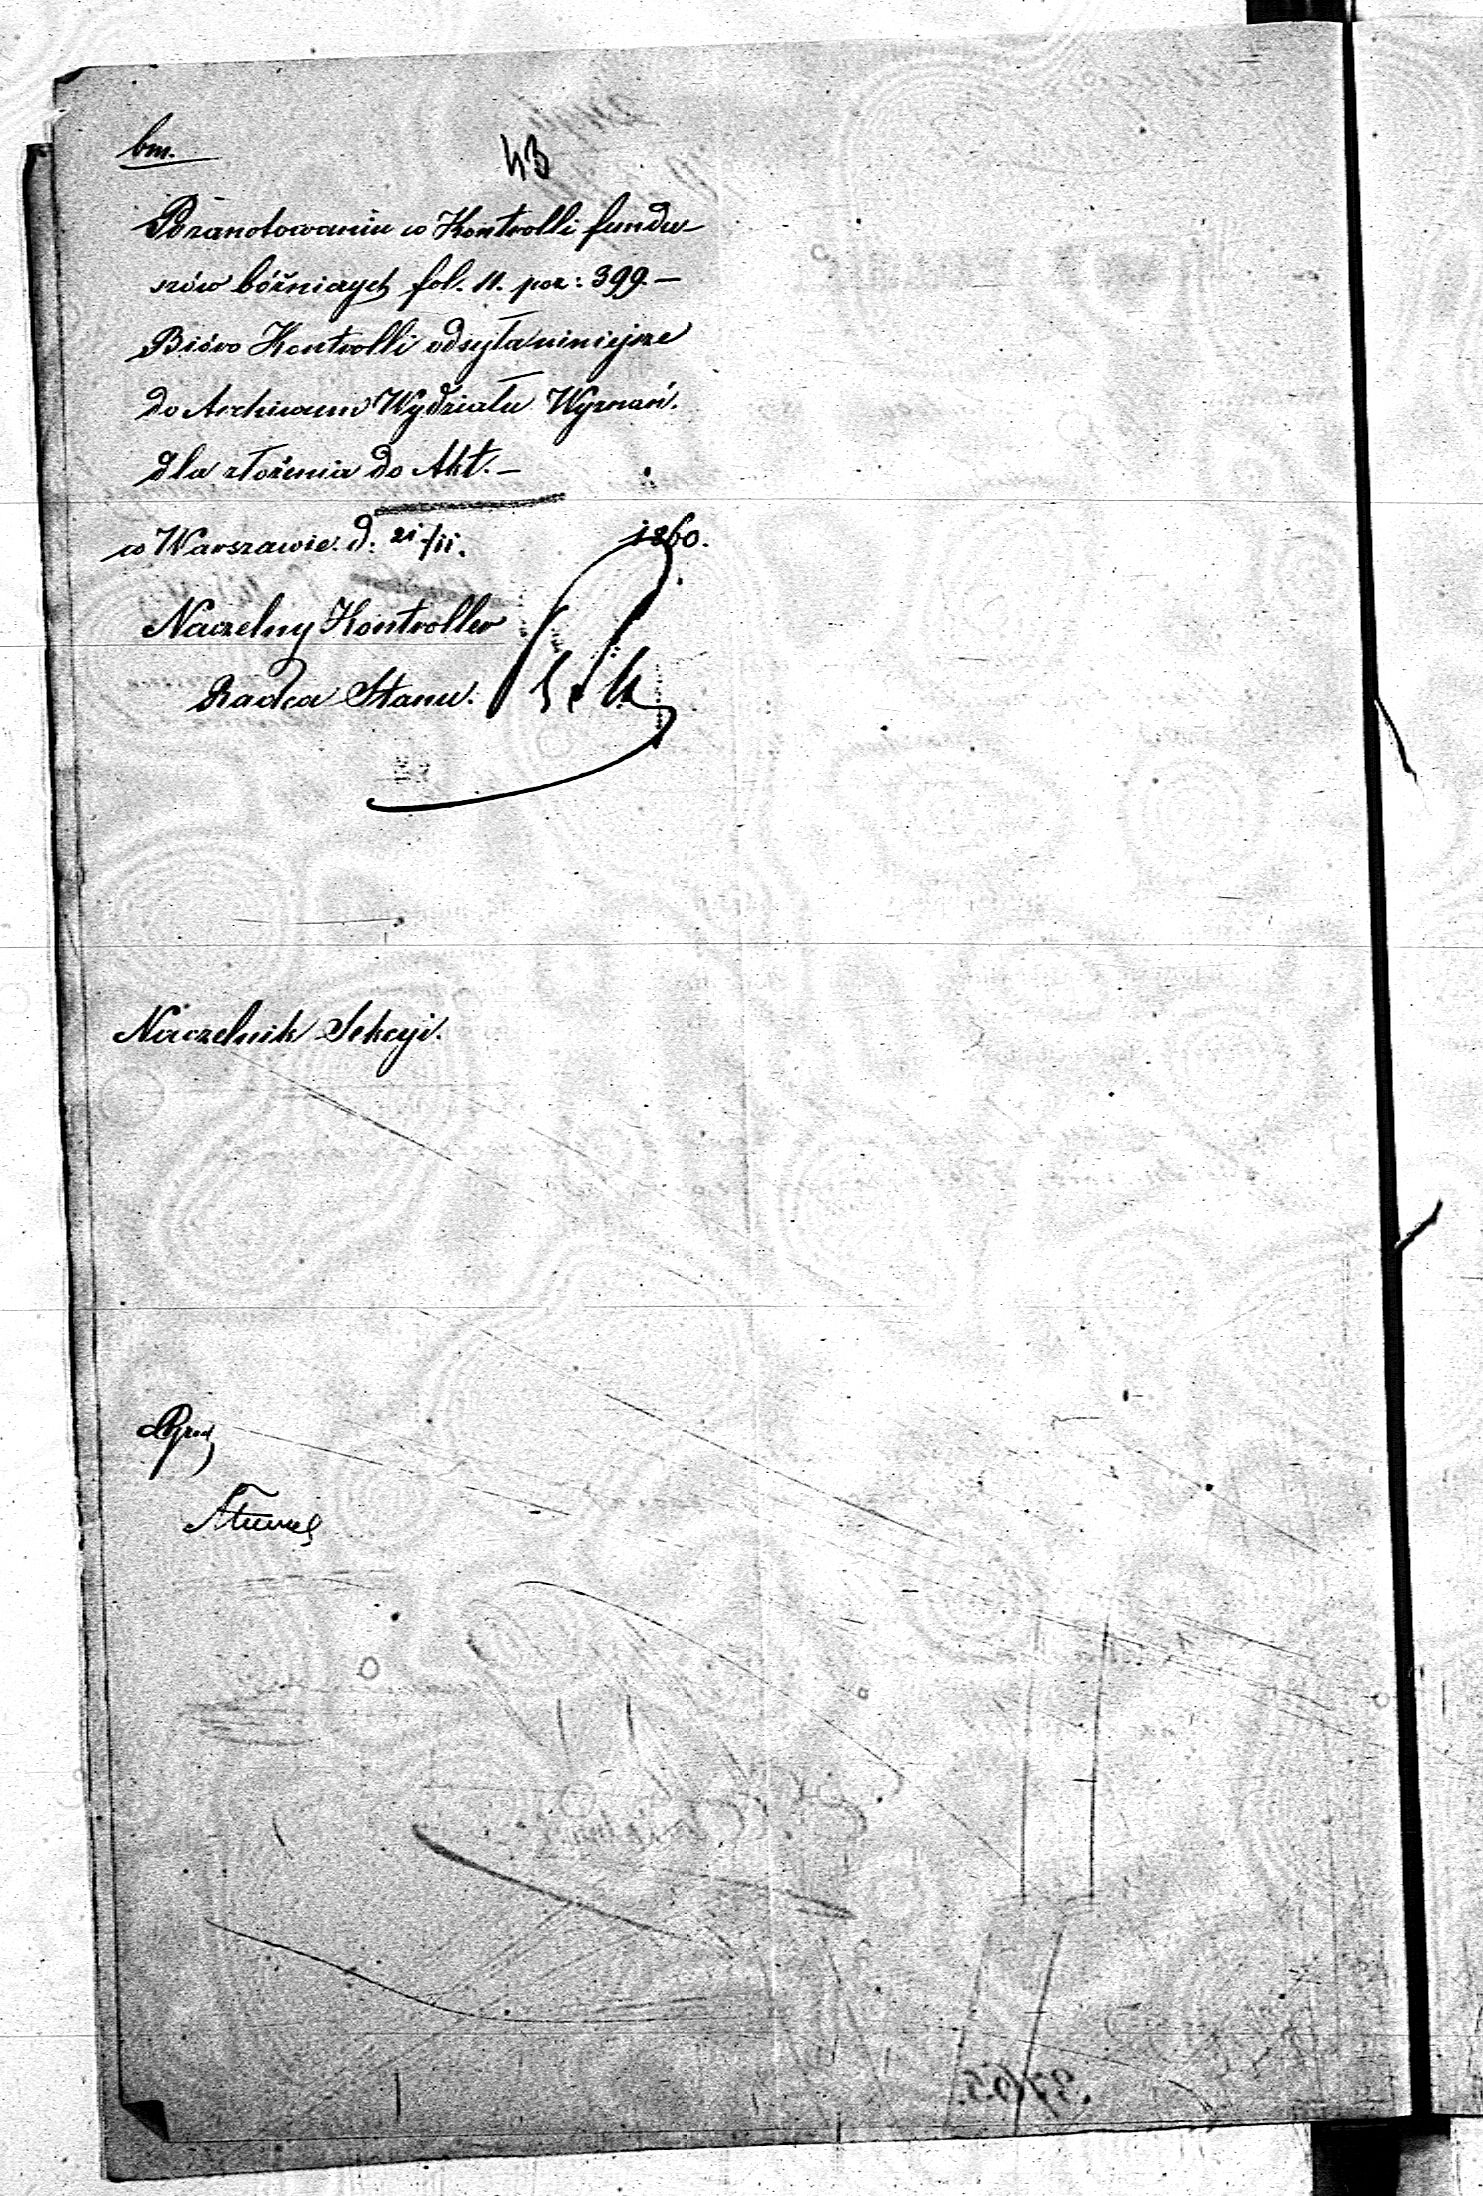 bm.
43
Pozanotowaniu w Kontrolli fundu-
szów bóżniczych fol. 11. poz: 399.—
Bióro Kontrolli odsyła niniejsze
do Archiwum Wydziału Wyznań.
dla złożenia do Akt.—
w Warszawie. d: 21/11. 1860.
Naczelny Kontroller
Radca Stanu.
Naczelnik Sekcyi.